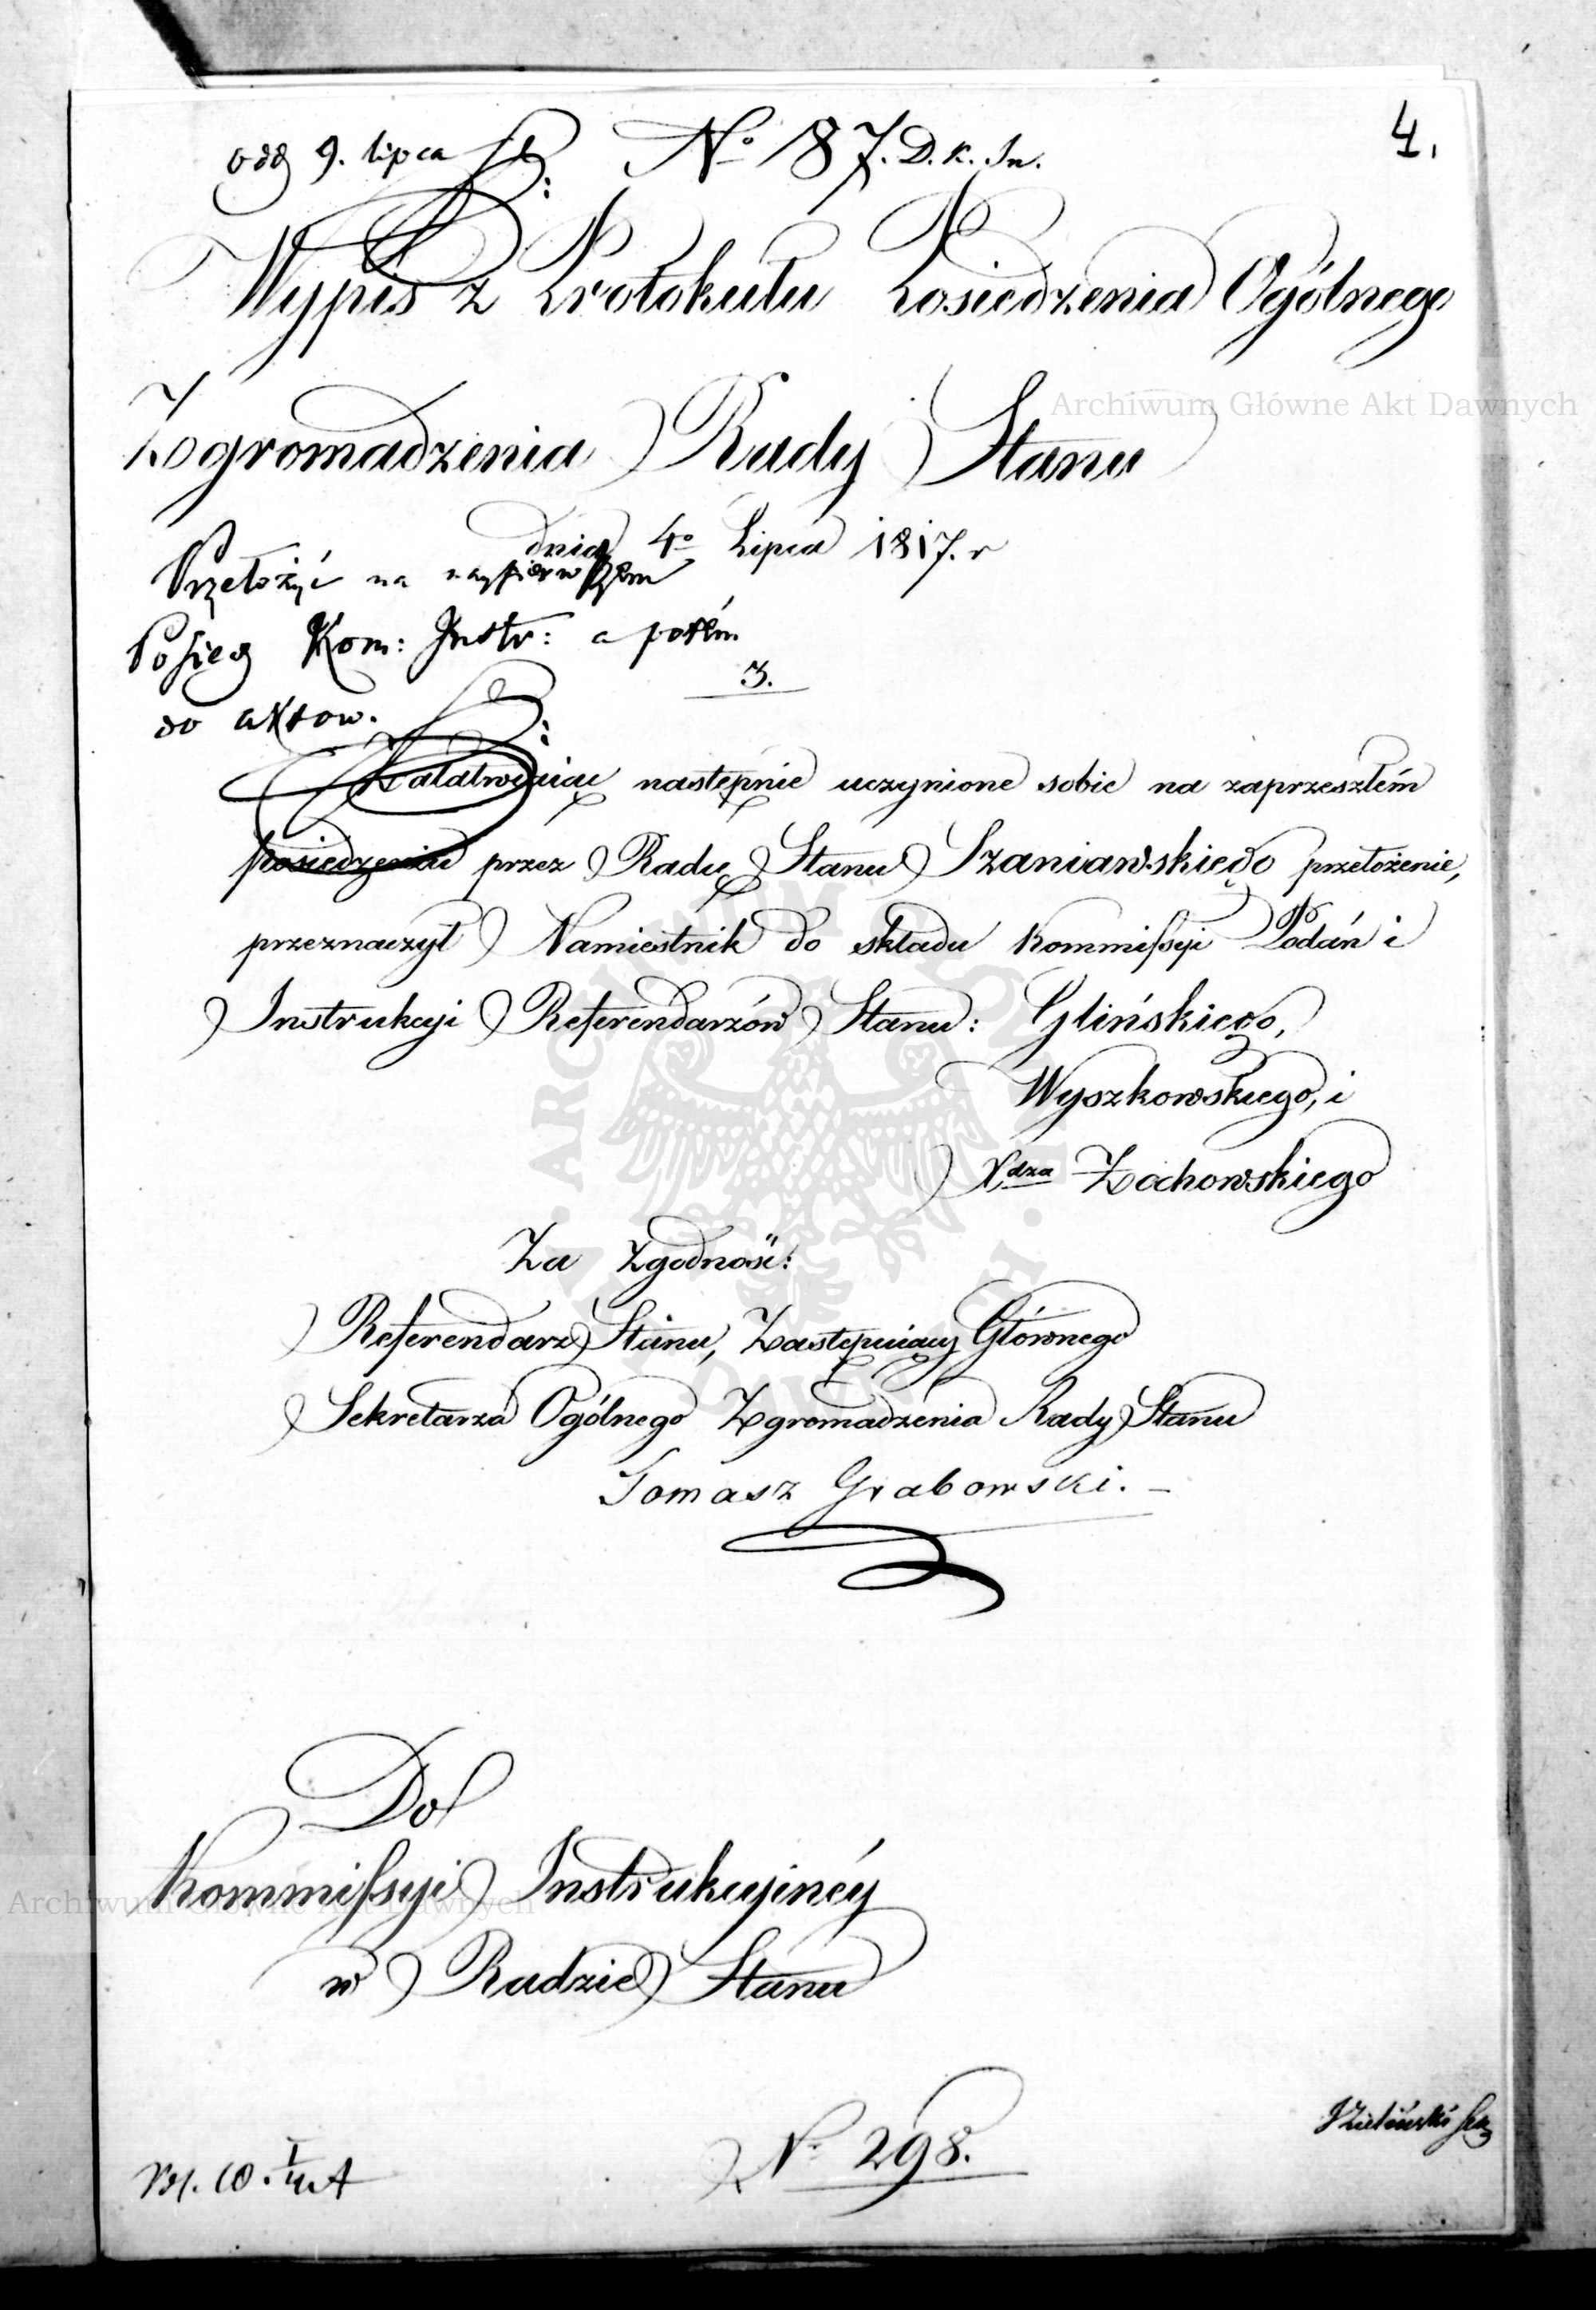 4.
odd 9. lipca
No 87. D. K. In.
Wypis z Protokułu Posiedzenia Ogólnego
Zgromadzenia Rady Stanu
dnia 4o Lipca 1817. r
Przełożyć na naypierwszem
Posied Kom: Instr: a potém
do aktow.
3.
Załatwiaiąc następnie uczynione sobie na zaprzeszłém
posiedzeniu przez Radcę Stanu Szaniawskiego przełożenie,
przeznaczył Namiestnik do składu Kommissyi Podań i
Instrukcyi Referendarzów Stanu: Glińskiego,
Wyszkowskiego, i
Xdza Żochowskiego
Za Zgodność:
Referendarz Stanu, Zastępuiący Głównego
Sekretarza Ogólnego Zgromadzenia Rady Stanu
Tomasz Grabowski. –
Do
Kommissyi Instrukcyinéy
w Radzie Stanu
No 298.
Archiwum Główne Akt Dawnych
Archiwum Główne Akt Dawnych